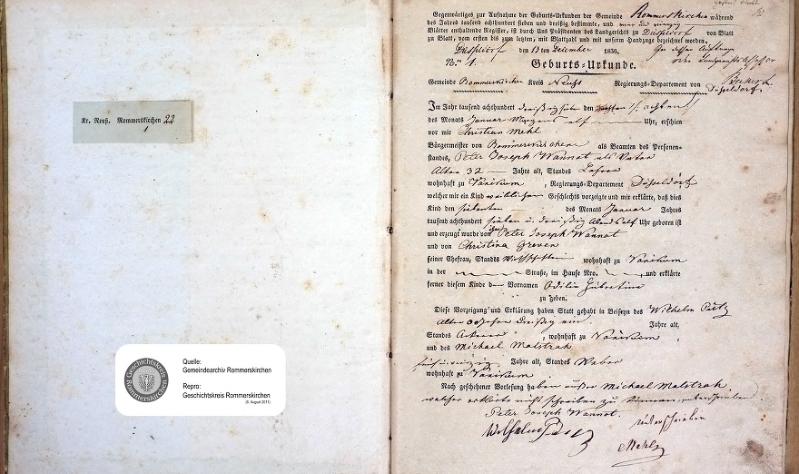 Kr. Neuß. Rommerskirchen 22
1
Quelle:
Gemeindearchiv Rommerskirchen
Repro:
Geschichtskreis Rommerskirchen
Gegenwärtiges zur Aufnahme der Geburts-Urkunden der Gemeinde Rommerskirchen während
des Jahres tausend achthundert sieben und dreißig bestimmte, und
Blätter enthaltende Register, ist durch Uns Präsidenten des Landgerichts zu Düsseldorf von Blatt
zu Blatt, vom ersten bis zum letzten, mit Blattzahl und mit unserm Handzuge bezeichnet worden.
Düsseldorf den Dezember 1836.
Nro. 1.
Geburts-Urkunde.
Gemeinde Rommerskirchen Kreis Neuß Regierungs-Departement von Düsseldorf.
Im Jahr tausend achthundert dreißig sieben den achten
des Monats Januar Morgens elf Uhr, erschien
vor mir Christian Mehl
Bürgermeister von Rommerskirchen als Beamten des Personen-
standes, Peter Joseph Wannot als Vater
Alter 32 Jahre alt, Standes
wohnhaft zu Vanikum, Regierungs-Departement Düsseldorf
welcher mir ein Kind weiblichen Geschlechts vorzeigte und mir erklärte, daß dies
Kind den siebenten des Monats Januar Jahres
tausend achthundert sieben u dreißig Abends elf Uhr geboren ist
und erzeugt wurde von Peter Joseph Wannot
und von Christina Greven
seiner Ehefrau, Standes wohnhaft zu Vanikum
in der Straße, im Hause Nro. und erklärte
ferner diesem Kinde den Vornamen Odilia Hubertina
zu geben.
Diese Vorzeigung und Erklärung haben Statt gehabt in Beiseyn des Wilhelm
Alter dreißig ein Jahre alt,
Standes Ackerer, wohnhaft zu Vanikum,
und des Michael Malstrah
Jahre alt, Standes Weber
wohnhaft zu Vanikum
Nach geschehener Vorlesung haben außer Michael Malstrah,
welcher erklärte nicht schreiben zu können, unterschrieben
Peter Joseph Wannot.
Mehl